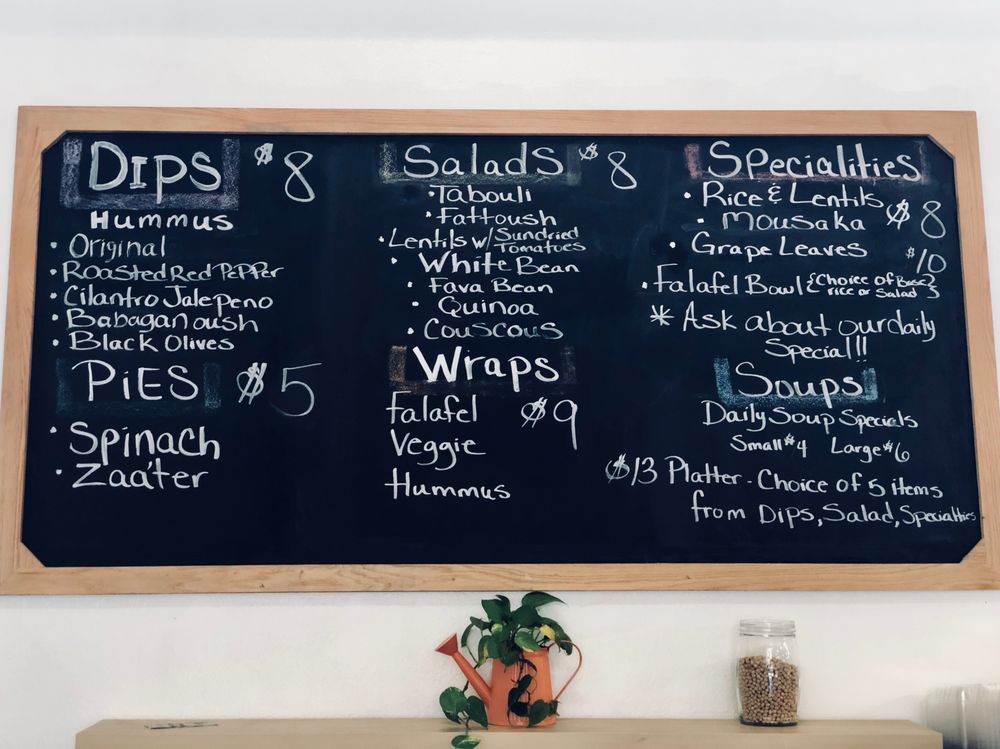 Dips $8
Hummus
• Original
• Roasted Red Pepper
• Cilantro Jalepeno
• Babaganoush
• Black Olives
PiES $5
• Spinach
• Zaa'ter
Salads $8
• Tabouli
• Fattoush
• Lentils w/ Sundried
Tomatoes
• White Bean
• Fava Bean
• Quinoa
• Couscous
Wraps
Falafel $9
Veggie
Hummus
Specialities
• Rice & Lentils
• Mousaka $8
• Grape Leaves
$10
• Falafel Bowl {Choice of Base}
rice or Salad
* Ask about our daily
Special!!
Soups
Daily Soup Specials
Small $4 Large $6
$13 Platter - Choice of 5 items
from Dips, Salad, Specialties